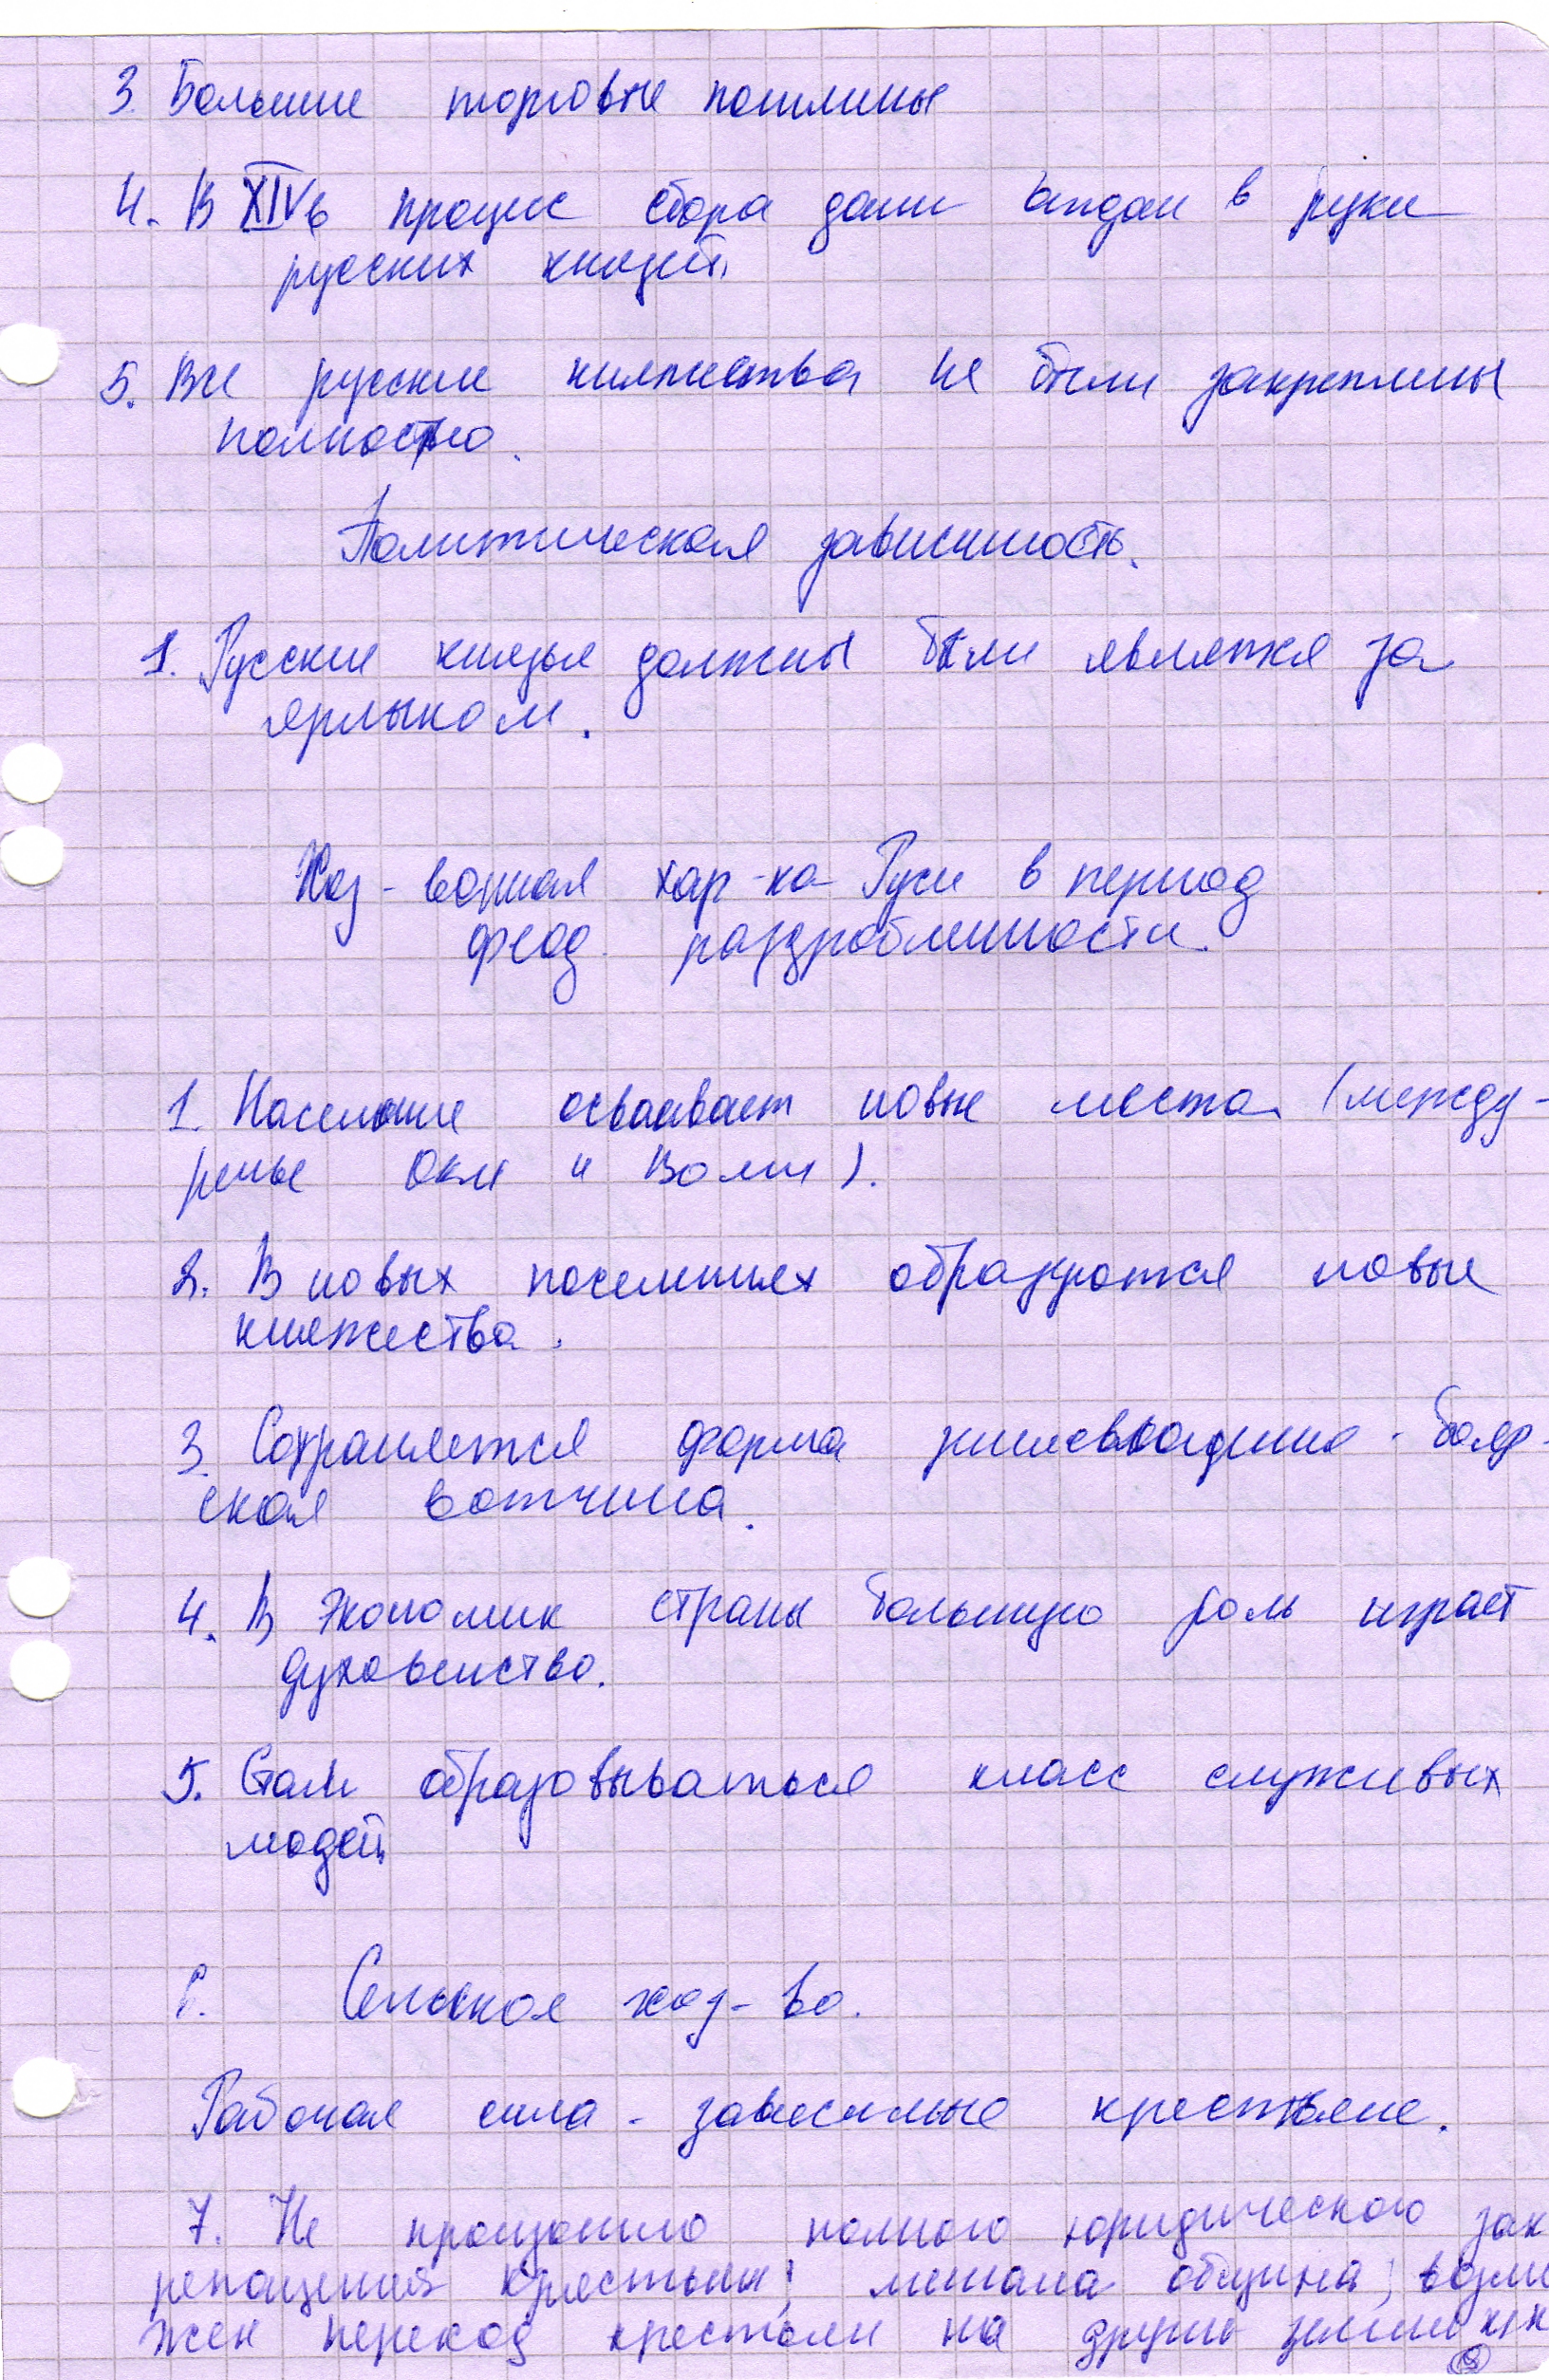 3. Большие торговые пошлины
4. В XIV в процесс сбора дани отдан в руки
русских князей.
5. Все русские княжества не были закреплены
полностью.
Политическая зависимость.
1. Русские князья должны были являтся за
ярлыком.
Хоз-венная хар-ка Руси в период
феод. раздробленности.
1. Население осваивает новые места (между-
речье Оки и Волги).
2. В новых поселениях образуются новые
княжества.
3. Сохраняется форма землевладения - бояр-
ская вотчина.
4. В экономик страны большую роль играет
духовенство.
5. Стал образовываться класс служивых
людей
Сельское хоз-во.
Рабочая сила - зависимые крестьяне.
7. Не произошло полного юридического зак
репощения крестьян; мешала община; возмо
жен переход крестьян на другие земли